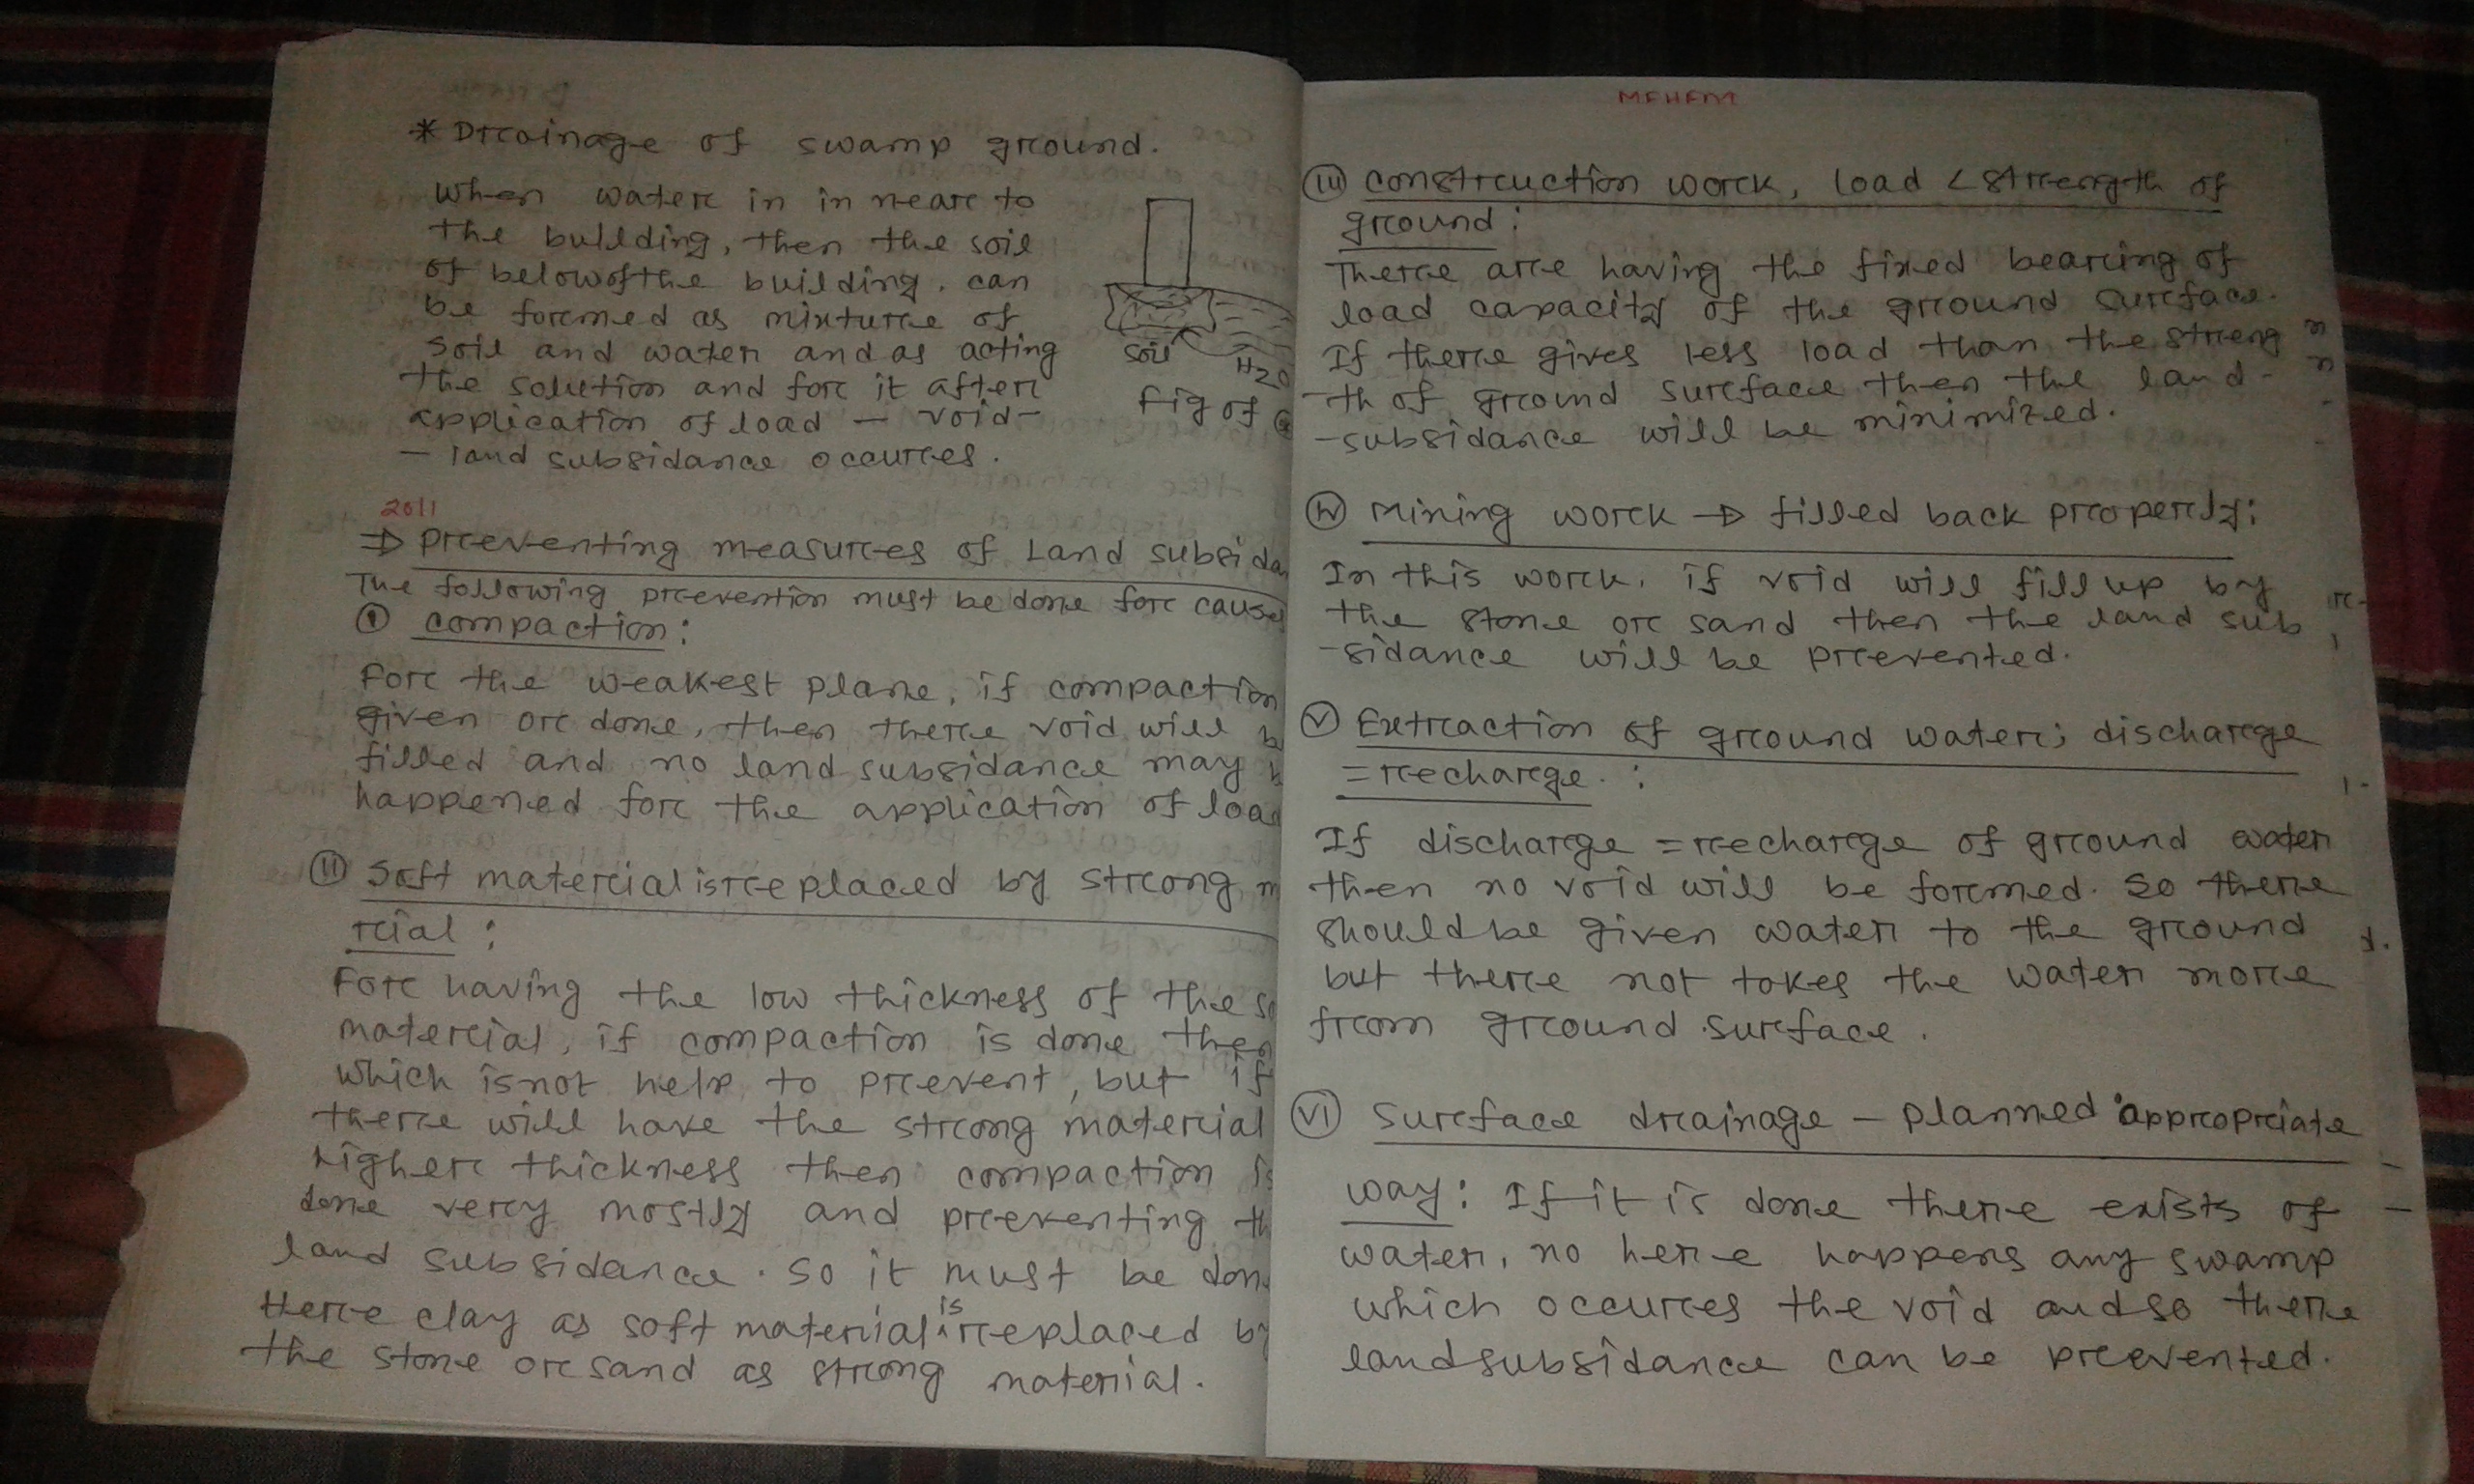 * Drainage of swamp ground.
When water in in near to
the building, then the soil
of belowofthe building. can
be formed as mixture of
soil and water and as acting
the solution and for it after
application of load — void-
— land subsidance occurres.
soil
H2O
fig of
2011
⇒ Preventing measures of Land subsida
The following prevention must be done for cause
(i) compaction:
For the weakest plane, if compaction
given or done, then there void will b
filled and no land subsidance may b
happened for the application of load
(ii) Soft material is replaced by strong m
rial:
For having the low thickness of the so
material, if compaction is done then
which isnot help to prevent, but if
there will have the strong material
higher thickness then compaction is
done very mostly and preventing th
land subsidance. so it must be don
Here clay as soft material is replaced by
the stone or sand as strong material.
MEHEM
(iii) construction work, load < strength of
ground:
There are having the fixed bearing of
load capacity of the ground surface.
If there gives less load than the streng
-th of ground surface then the land-
-subsidance will be minimized.
(iv) Mining work → filled back properly:
In this work, if void will fill up by
the stone or sand then the land sub
-sidance will be prevented.
(v) Extraction of ground water; discharge
=recharge. :
If discharge =recharge of ground water
then no void will be formed. so there
should be given water to the ground
but there not takes the water more
from ground surface.
(vi) surface drainage — planned appropriate
way: If it is done there exists of
water, no here happens any swamp
which occurres the void and so there
landsubsidance can be prevented.